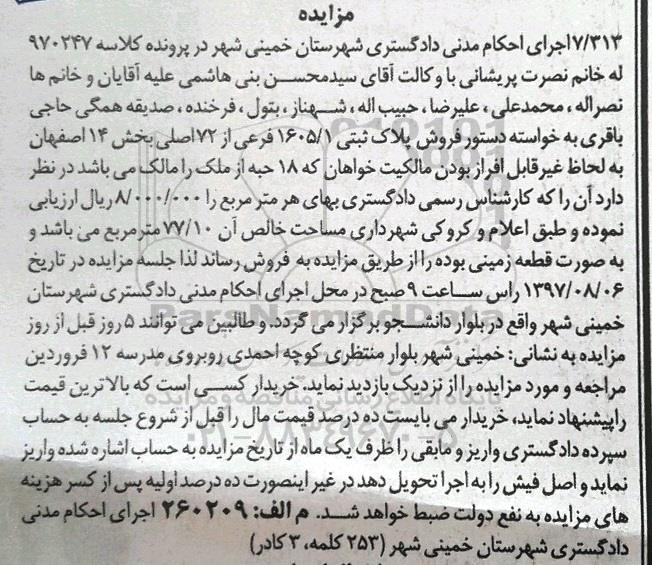 مزایده
۷/۳۱۳اجرای احکام مدنی دادگستری شهرستان خمینی شهر در پرونده کلاسه ۹۷۰۲۴۷
له خانم نصرت پریشانی با وکالت آقای سیدمحسن بنی هاشمی علیه آقایان و خانم ها
نصراله ، محمدعلی ، علیرضا ، حبیب اله ، شهناز ، بتول ، فرخنده ، صدیقه همگی حاجی
باقری به خواسته دستور فروش پلاک ثبتی ۱۶۰۵/۱ فرعی از ۷۲اصلی بخش ۱۴ اصفهان
به لحاظ غیرقابل افراز بودن مالکیت خواهان که ۱۸ حبه از ملک را مالک می باشد در نظر
دارد آن را که کارشناس رسمی دادگستری بهای هر متر مربع را ۸/۰۰۰/۰۰۰ ریال ارزیابی
نموده و طبق اعلام و کروکی شهرداری مساحت خالص آن ۷۷/۱۰ مترمربع می باشد و
به صورت قطعه زمینی بوده را از طریق مزایده به فروش رساند لذا جلسه مزایده در تاریخ
۱۳۹۷/۰۸/۰۶ راس ساعت ۹ صبح در محل اجرای احکام مدنی دادگستری شهرستان
خمینی شهر واقع در بلوار دانشجو برگزار می گردد. و طالبین می توانند ۵ روز قبل از روز
مزایده به نشانی: خمینی شهر بلوار منتظری کوچه احمدی روبروی مدرسه ۱۲ فروردین
مراجعه و مورد مزایده را از نزدیک بازدید نماید. خریدار کسی است که بالاترین قیمت
را پیشنهاد نماید، خریدار می بایست ده درصد قیمت مال را قبل از شروع جلسه به حساب
سپرده دادگستری واریز و مابقی را ظرف یک ماه از تاریخ مزایده به حساب اشاره شده واریز
نماید و اصل فیش را به اجرا تحویل دهد در غیر اینصورت ده درصد اولیه پس از کسر هزینه
های مزایده به نفع دولت ضبط خواهد شد. م الف: ۲۶۰۲۰۹ اجرای احکام مدنی
دادگستری شهرستان خمینی شهر (۲۵۳ کلمه، ۳ کادر)
ParsNamadData
پایگاه اطلاع رسانی مناقصه و مزایده